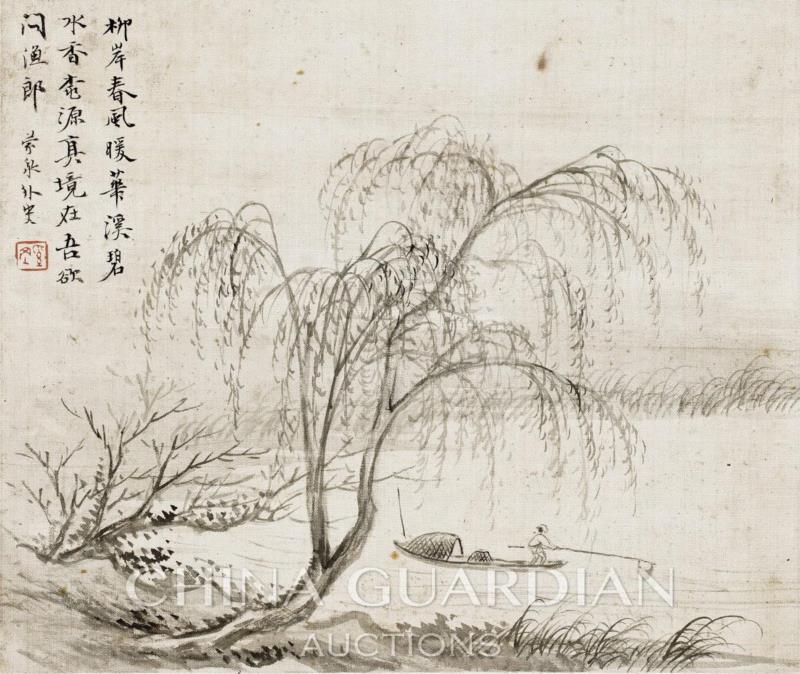 柳岸春風暖華溪碧
水香桃源真境在吾欲
問漁郎 蒙泉外史
CHINA GUARDIAN
AUCTIONS